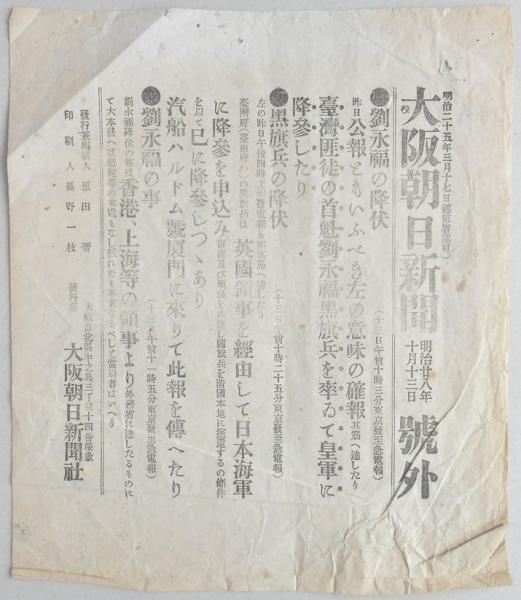 明治二十五年三月十七日遞信省認可
大阪朝日新聞 明治廿八年十月十三日 號外
●劉永福の降伏 (十三日午前十時三分東京發至急電報)
昨日公報ともいふべき左の意味の確報其筋へ達したり
臺灣匪徒の首魁劉永福黑旗兵を率ゐて皇軍に
降參したり
●黑旗兵の降伏 (十三日午前十時二十五分東京發至急電報)
左の昨日午後四時上海發電報も亦其筋へ達したり
臺灣府(臺南府か)の黑旗兵は英國領事を經由して日本海軍
に降參を申込み
を以て已に降參しつゝあり
汽船ハルドム號厦門に來りて此報を傳へたり
●劉永福の事 (十三日午前十一時五分東京發至急電報)
劉永福降伏の報は香港、上海等の領事より外務省に達したるものに
發行兼編輯人 原田
印刷人 長野一枝
發行所 大阪市北區中之島三丁目十四番屋敷
大阪朝日新聞社